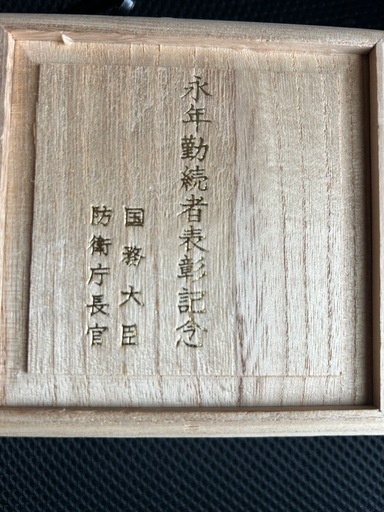 永年勤続者表彰記念
国務大臣
防衛庁長官